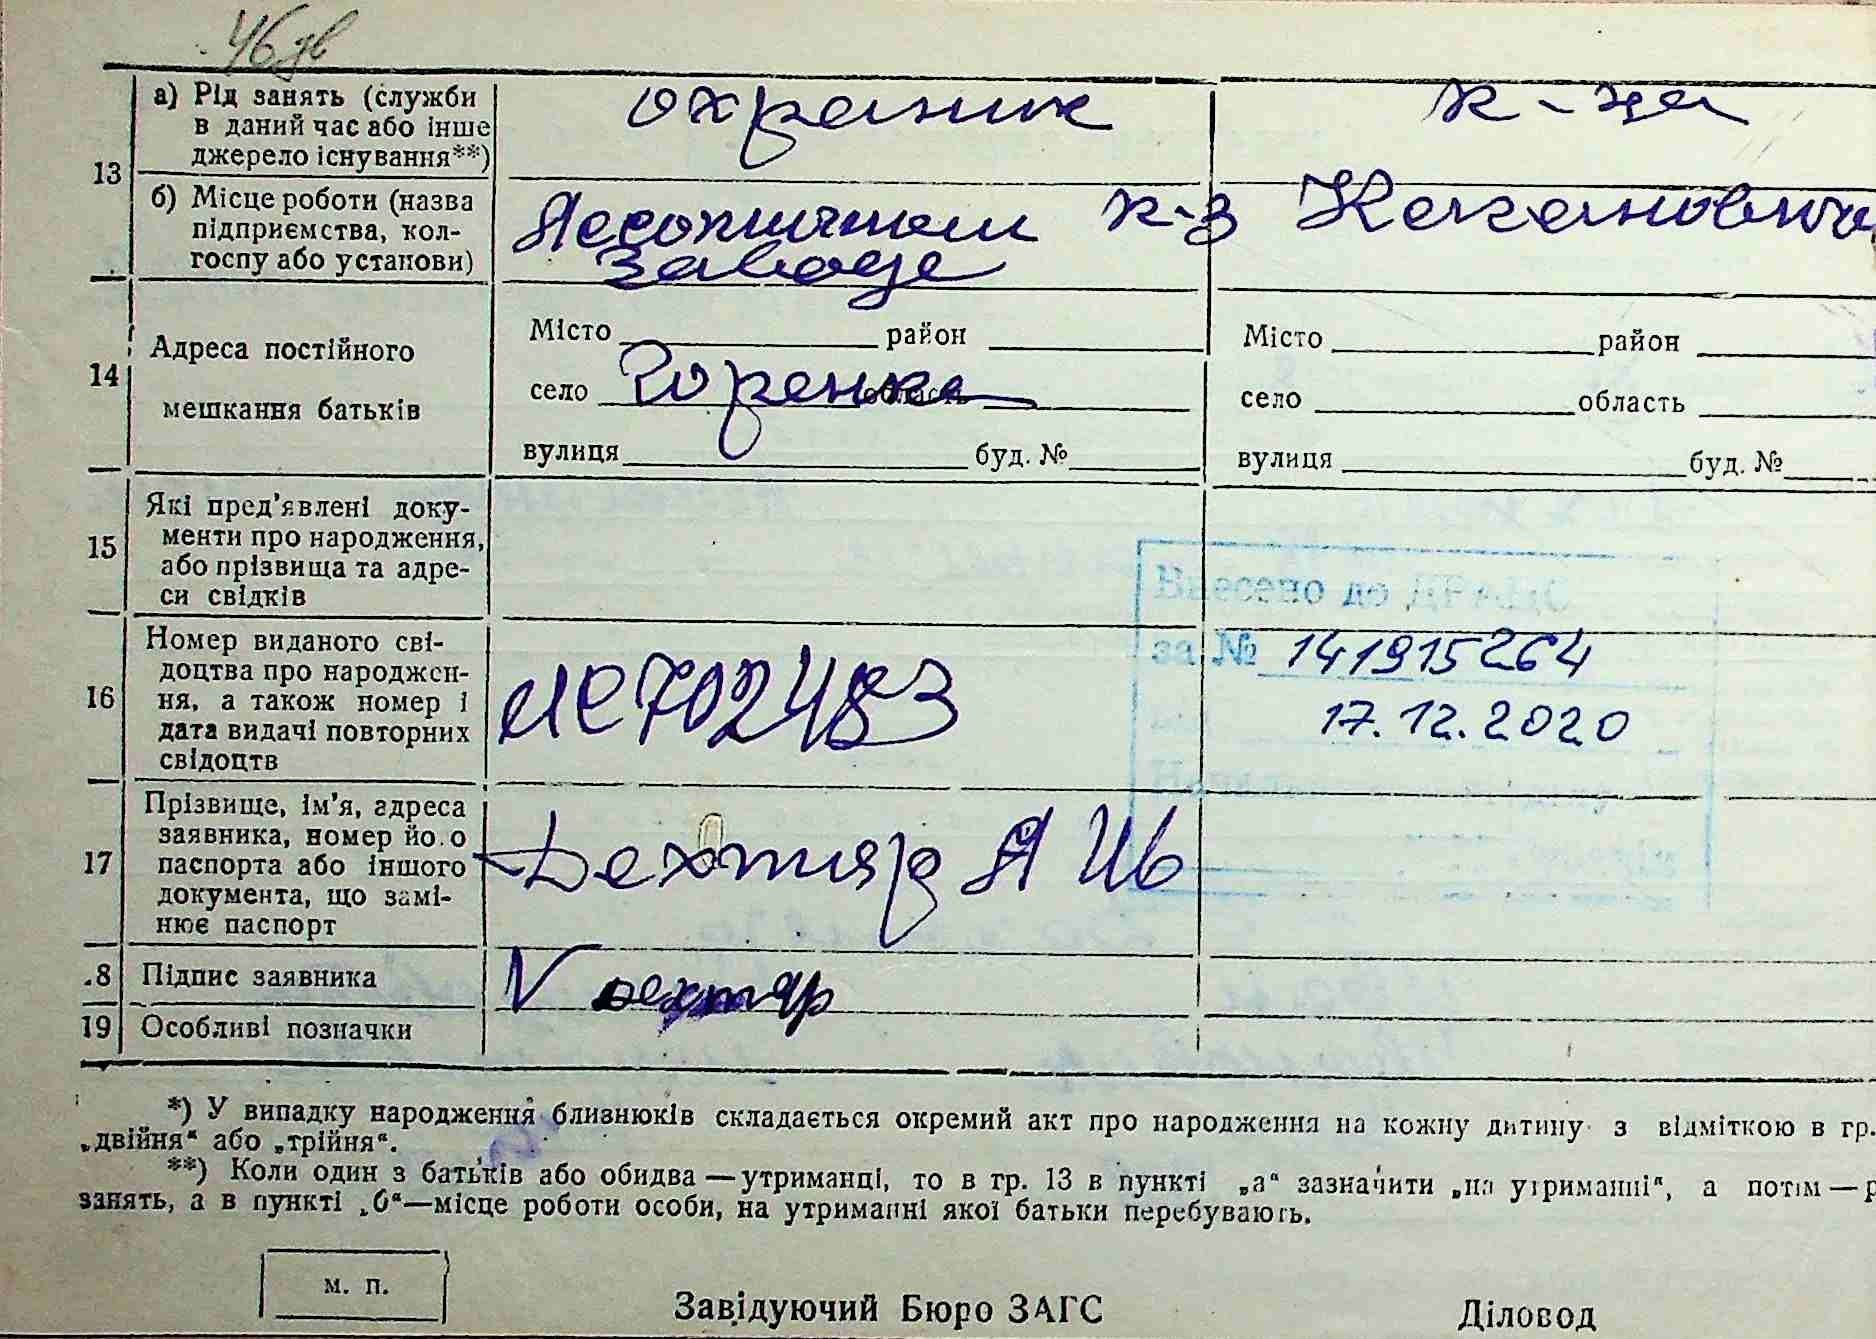 46
а) Рід занять (служби
в даний час або інше
джерело існування**)
охраник
к-ца
13
б) Місце роботи (назва
підприємства, кол-
госпу або установи)
заводе
к-з Кагановича
14
Адреса постійного
мешкання батьків
Місто район
село Горенка область
вулиця буд. №
Місто район
село область
вулиця буд. №
15
Які пред'явлені доку-
менти про народження,
або прізвища та адре-
си свідків
Внесено до ДРАЦС
за № 141915264
17.12.2020
16
Номер виданого сві-
доцтва про народжен-
ня, а також номер і
дата видачі повторних
свідоцтв
702483
17
Прізвище, ім'я, адреса
заявника, номер йо.о
паспорта або іншого
документа, що замі-
нює паспорт
Дехтяр А Ив
.8 Підпис заявника
V дехтяр
19 Особливі позначки
*) У випадку народження близнюків складається окремий акт про народження на кожну дитину з відміткою в гр.
„двійня“ або „трійня“.
**) Коли один з батьків або обидва—утриманці, то в гр. 13 в пункті „а“ зазначити „на утриманні“, а потім — р
занять, а в пункті „б“—місце роботи особи, на утриманні якої батьки перебувають.
м. п.
Завідуючий Бюро ЗАГС
Діловод